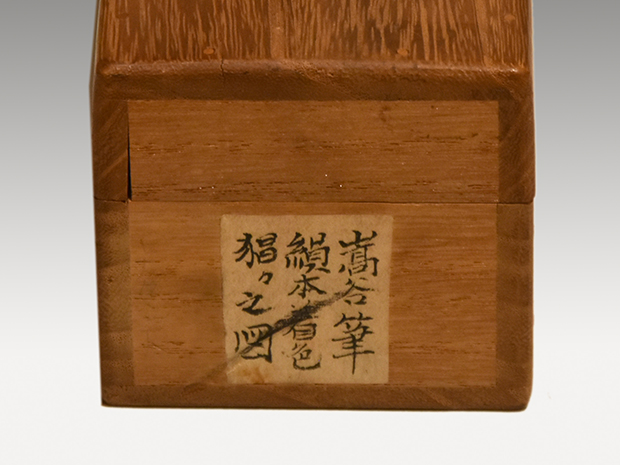 嵩谷筆
絹本着色
猩々之図